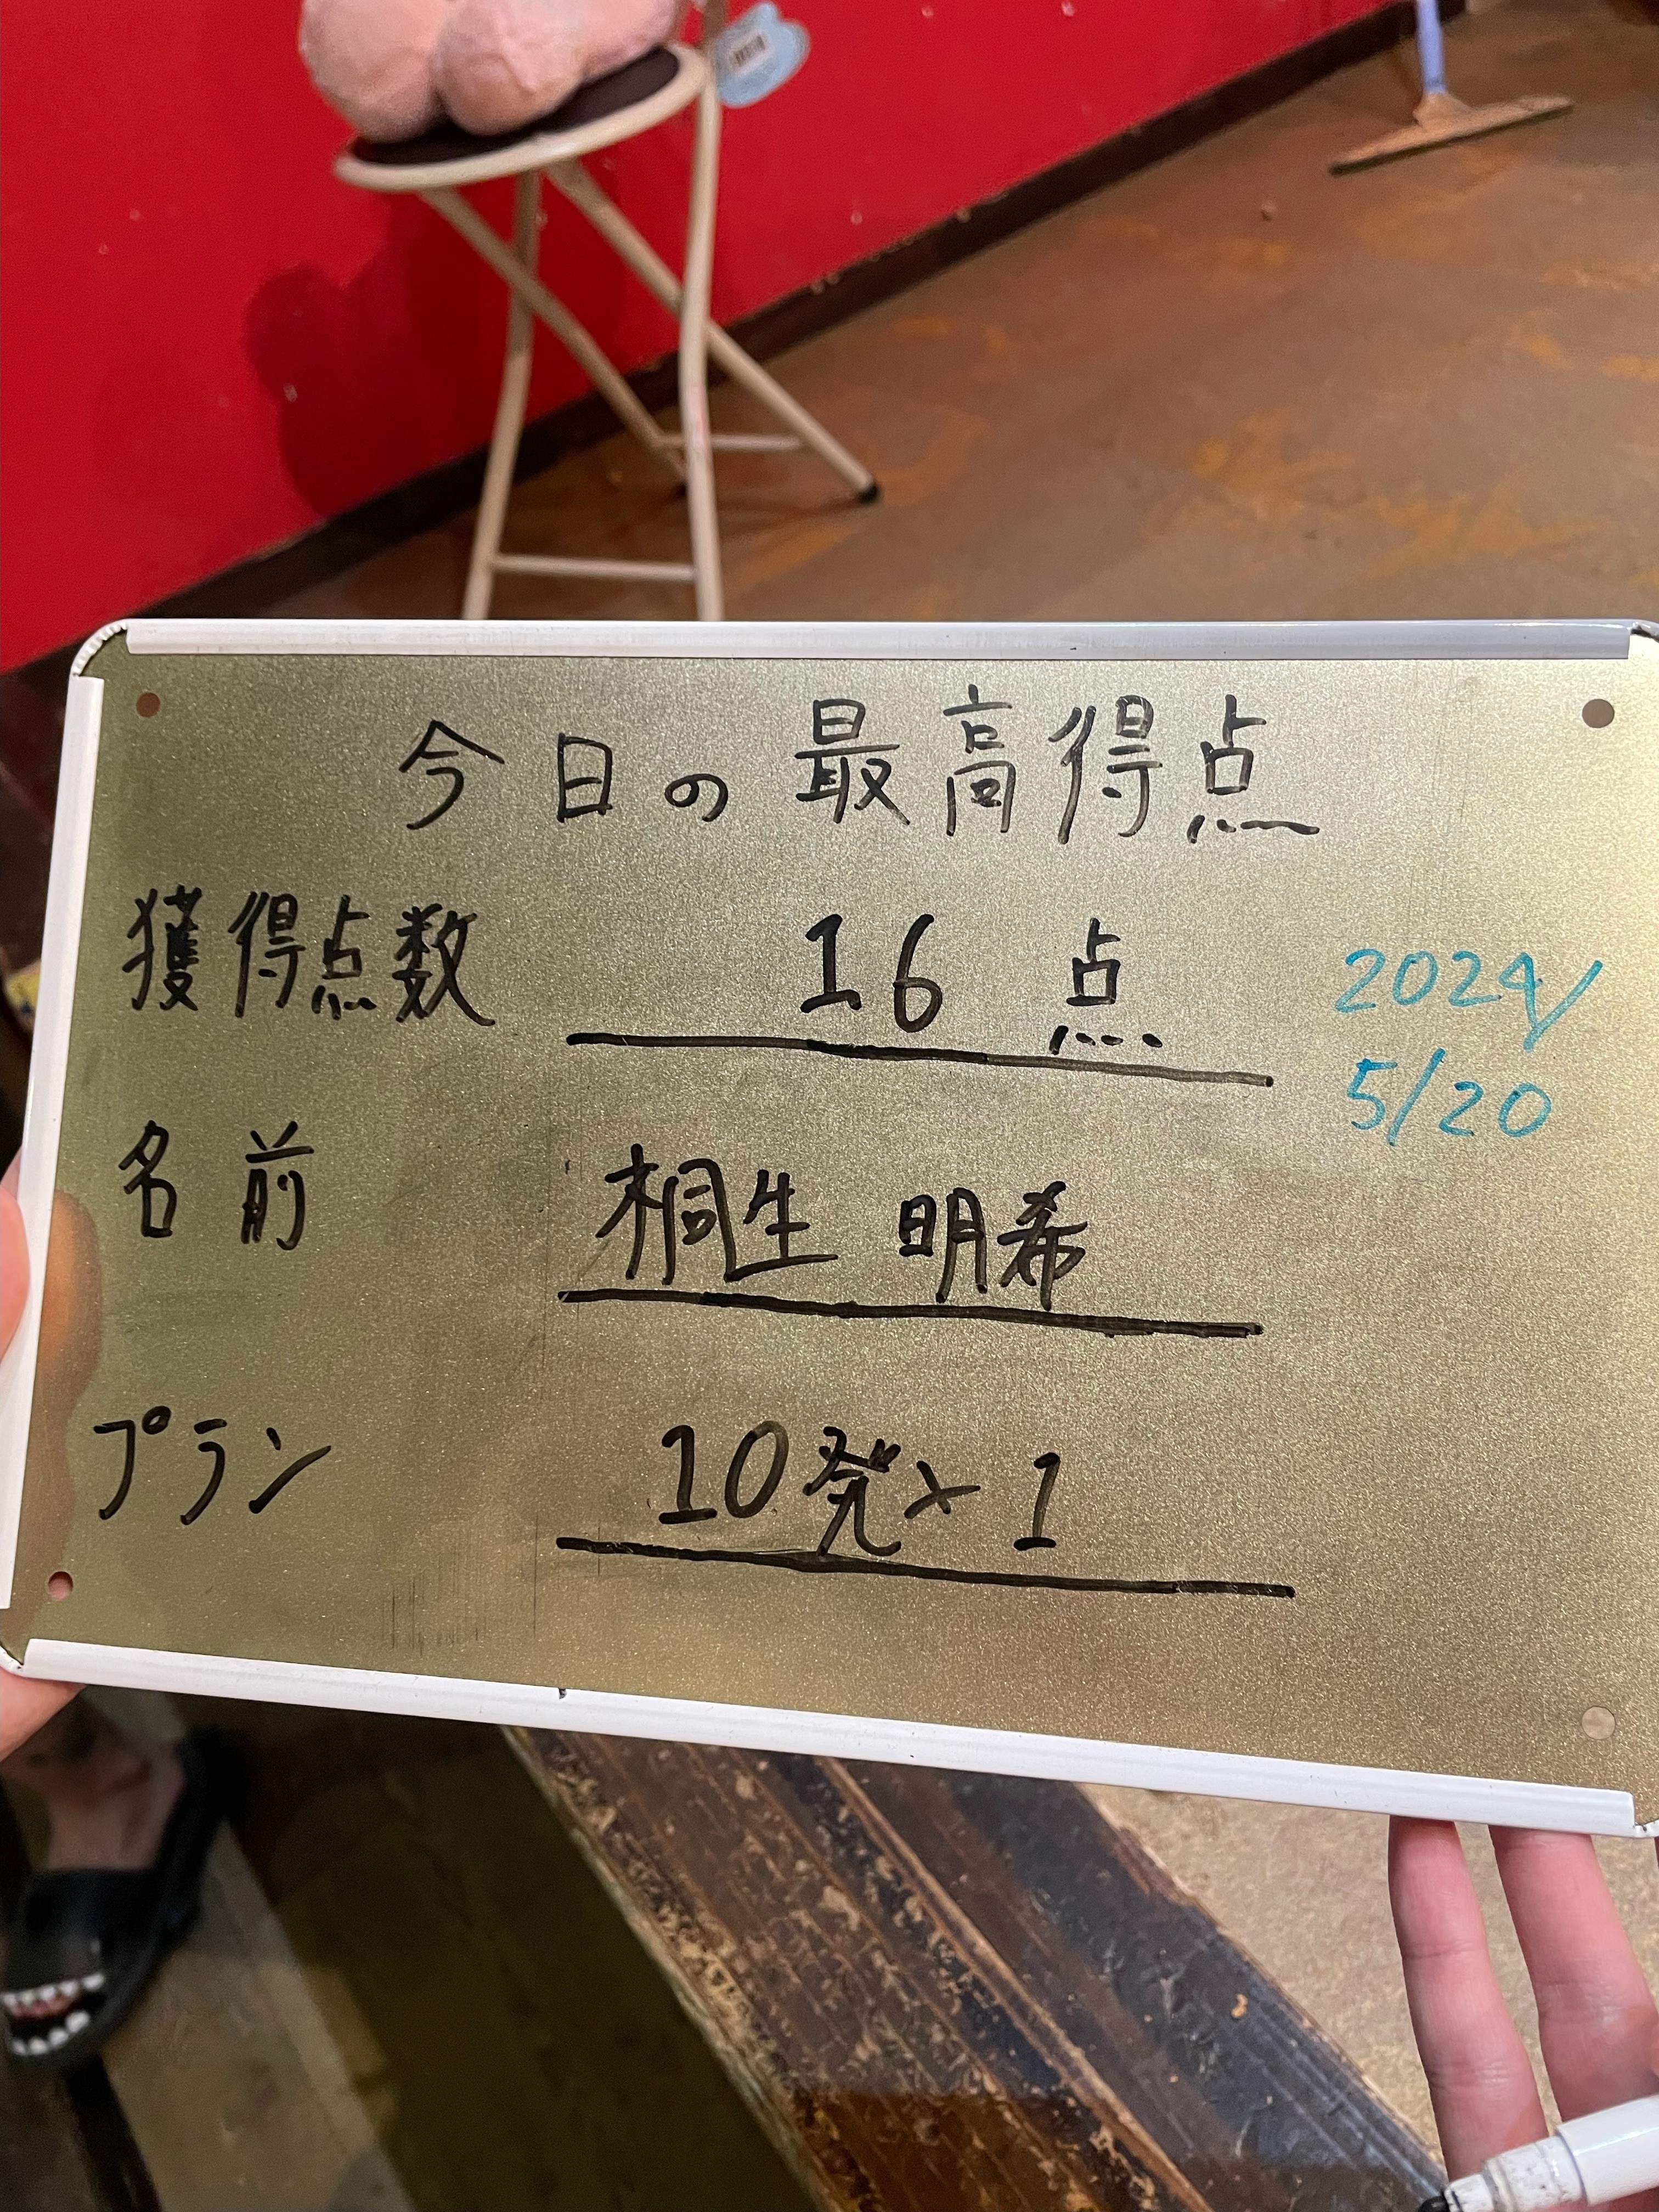 今日の最高得点
獲得点数 16 点
2024/
5/20
名前 桐生 明希
プラン 10発×1